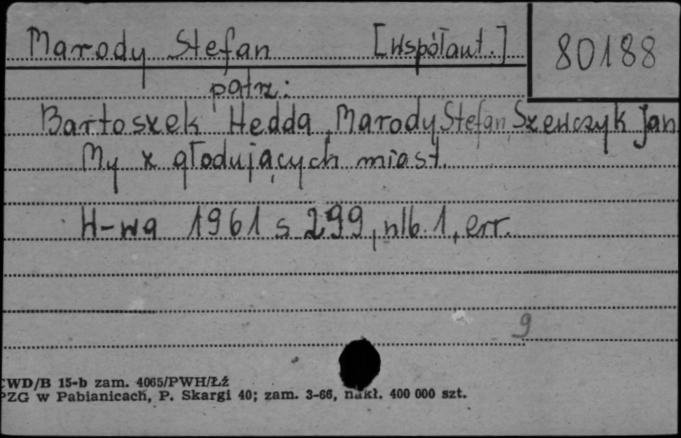 Marody Stefan [Współaut.] 80188
patrz:
Bartoszek Hedda, Marody Stefan, Szewczyk Jan
My z głodujących miast.
W-wa 1961 s 299, nlb. 1, err.
9
CWD/B 15-b zam. 4065/PWH/Łź
PZG w Pabianicach, P. Skargi 40; zam. 3-66, nakł. 400 000 szt.